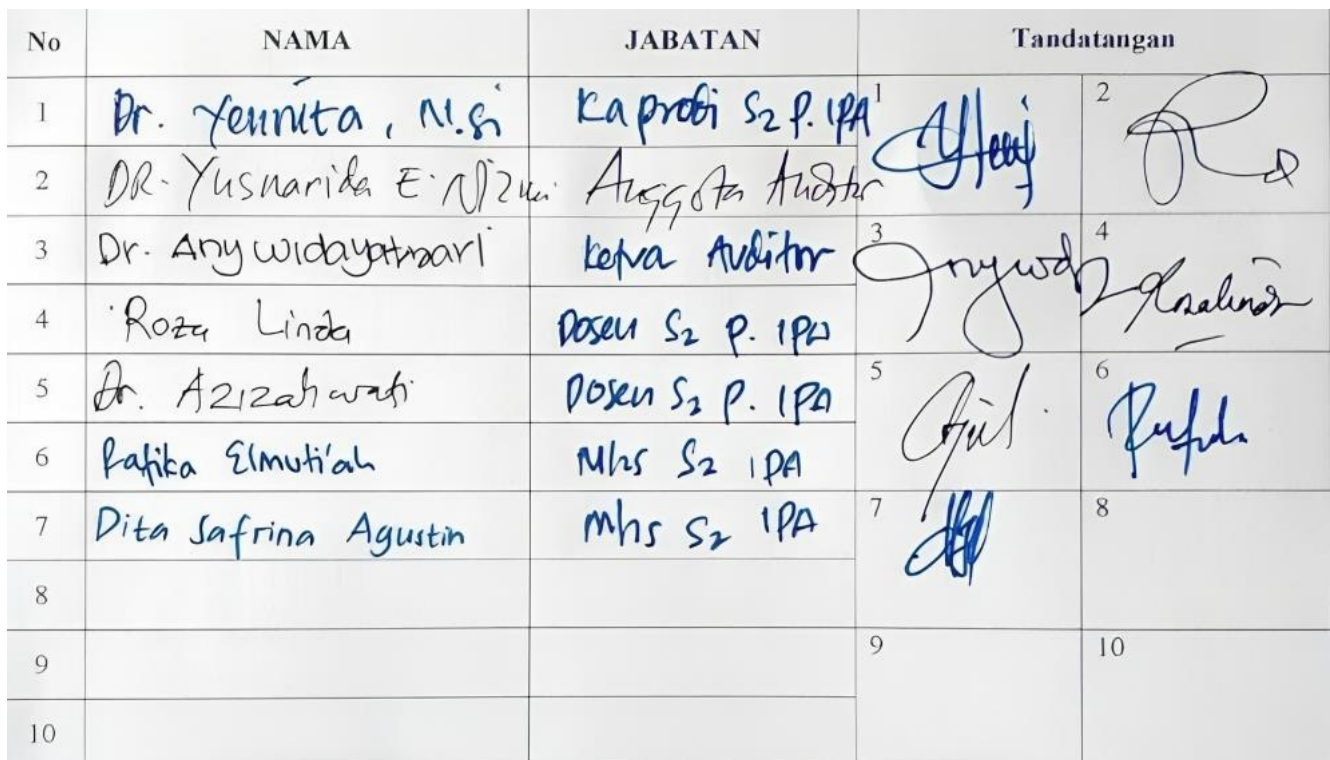 No NAMA JABATAN Tandatangan
1 Dr. Yennita, M.si Kaprodi S2 P. IPA 1 2
2 DR. Yusnarida E. Nizmi Anggota Auditor
3 Dr. Any widayatsari Ketua Auditor 3 4
4 Roza Linda Dosen S2 P. IPA
5 Dr. Azizahwati Dosen S2 P. IPA 5 6
6 Rafika Elmuti'ah Mhs S2 IPA
7 Dita Safrina Agustin Mhs S2 IPA 7 8
8
9 9 10
10